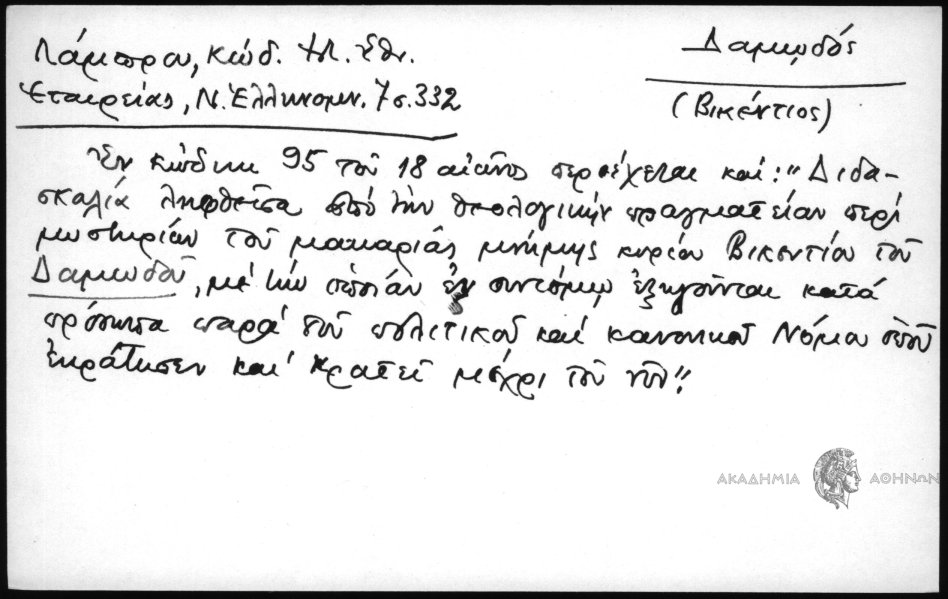 Λάμπρου, Κώδ. Ἱστ. Ἐθν.
Ἑταιρείας, Ν. Ἑλληνομν. 7 σ. 332
Δαμωδός
(Βικέντιος)
Ἐν κώδικι 95 τοῦ 18 αἰῶνος περιέχεται καί: "Διδα-
σκαλία ληφθεῖσα ἀπό τήν θεολογικήν πραγματείαν περί
μυστηρίων τοῦ μακαρίας μνήμης κυρίου Βικεντίου τοῦ
Δαμωδοῦ, μέ τήν ὁποίαν ἐν συντόμῳ ἐξηγοῦνται κατά
πρόσωπα παρά τοῦ πολιτικοῦ καί κανονικοῦ Νόμου ὁποῦ
ἐκράτησεν καί κρατεῖ μέχρι τοῦ νῦν".
ΑΚΑΔΗΜΙΑ ΑΘΗΝΩΝ